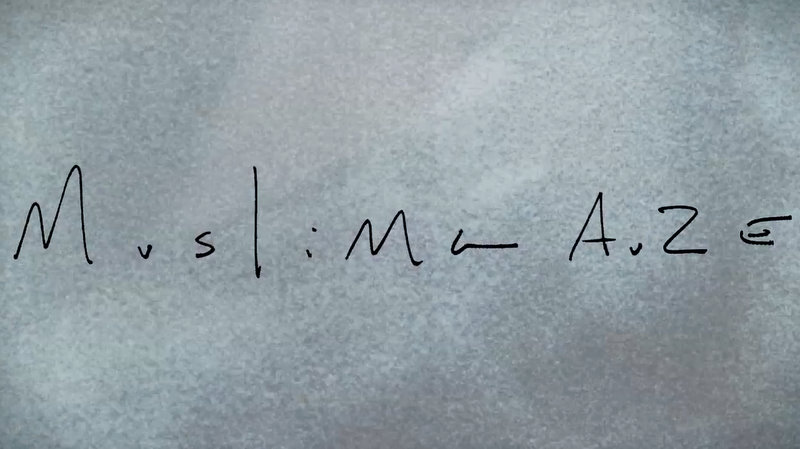 Muslima AuZE